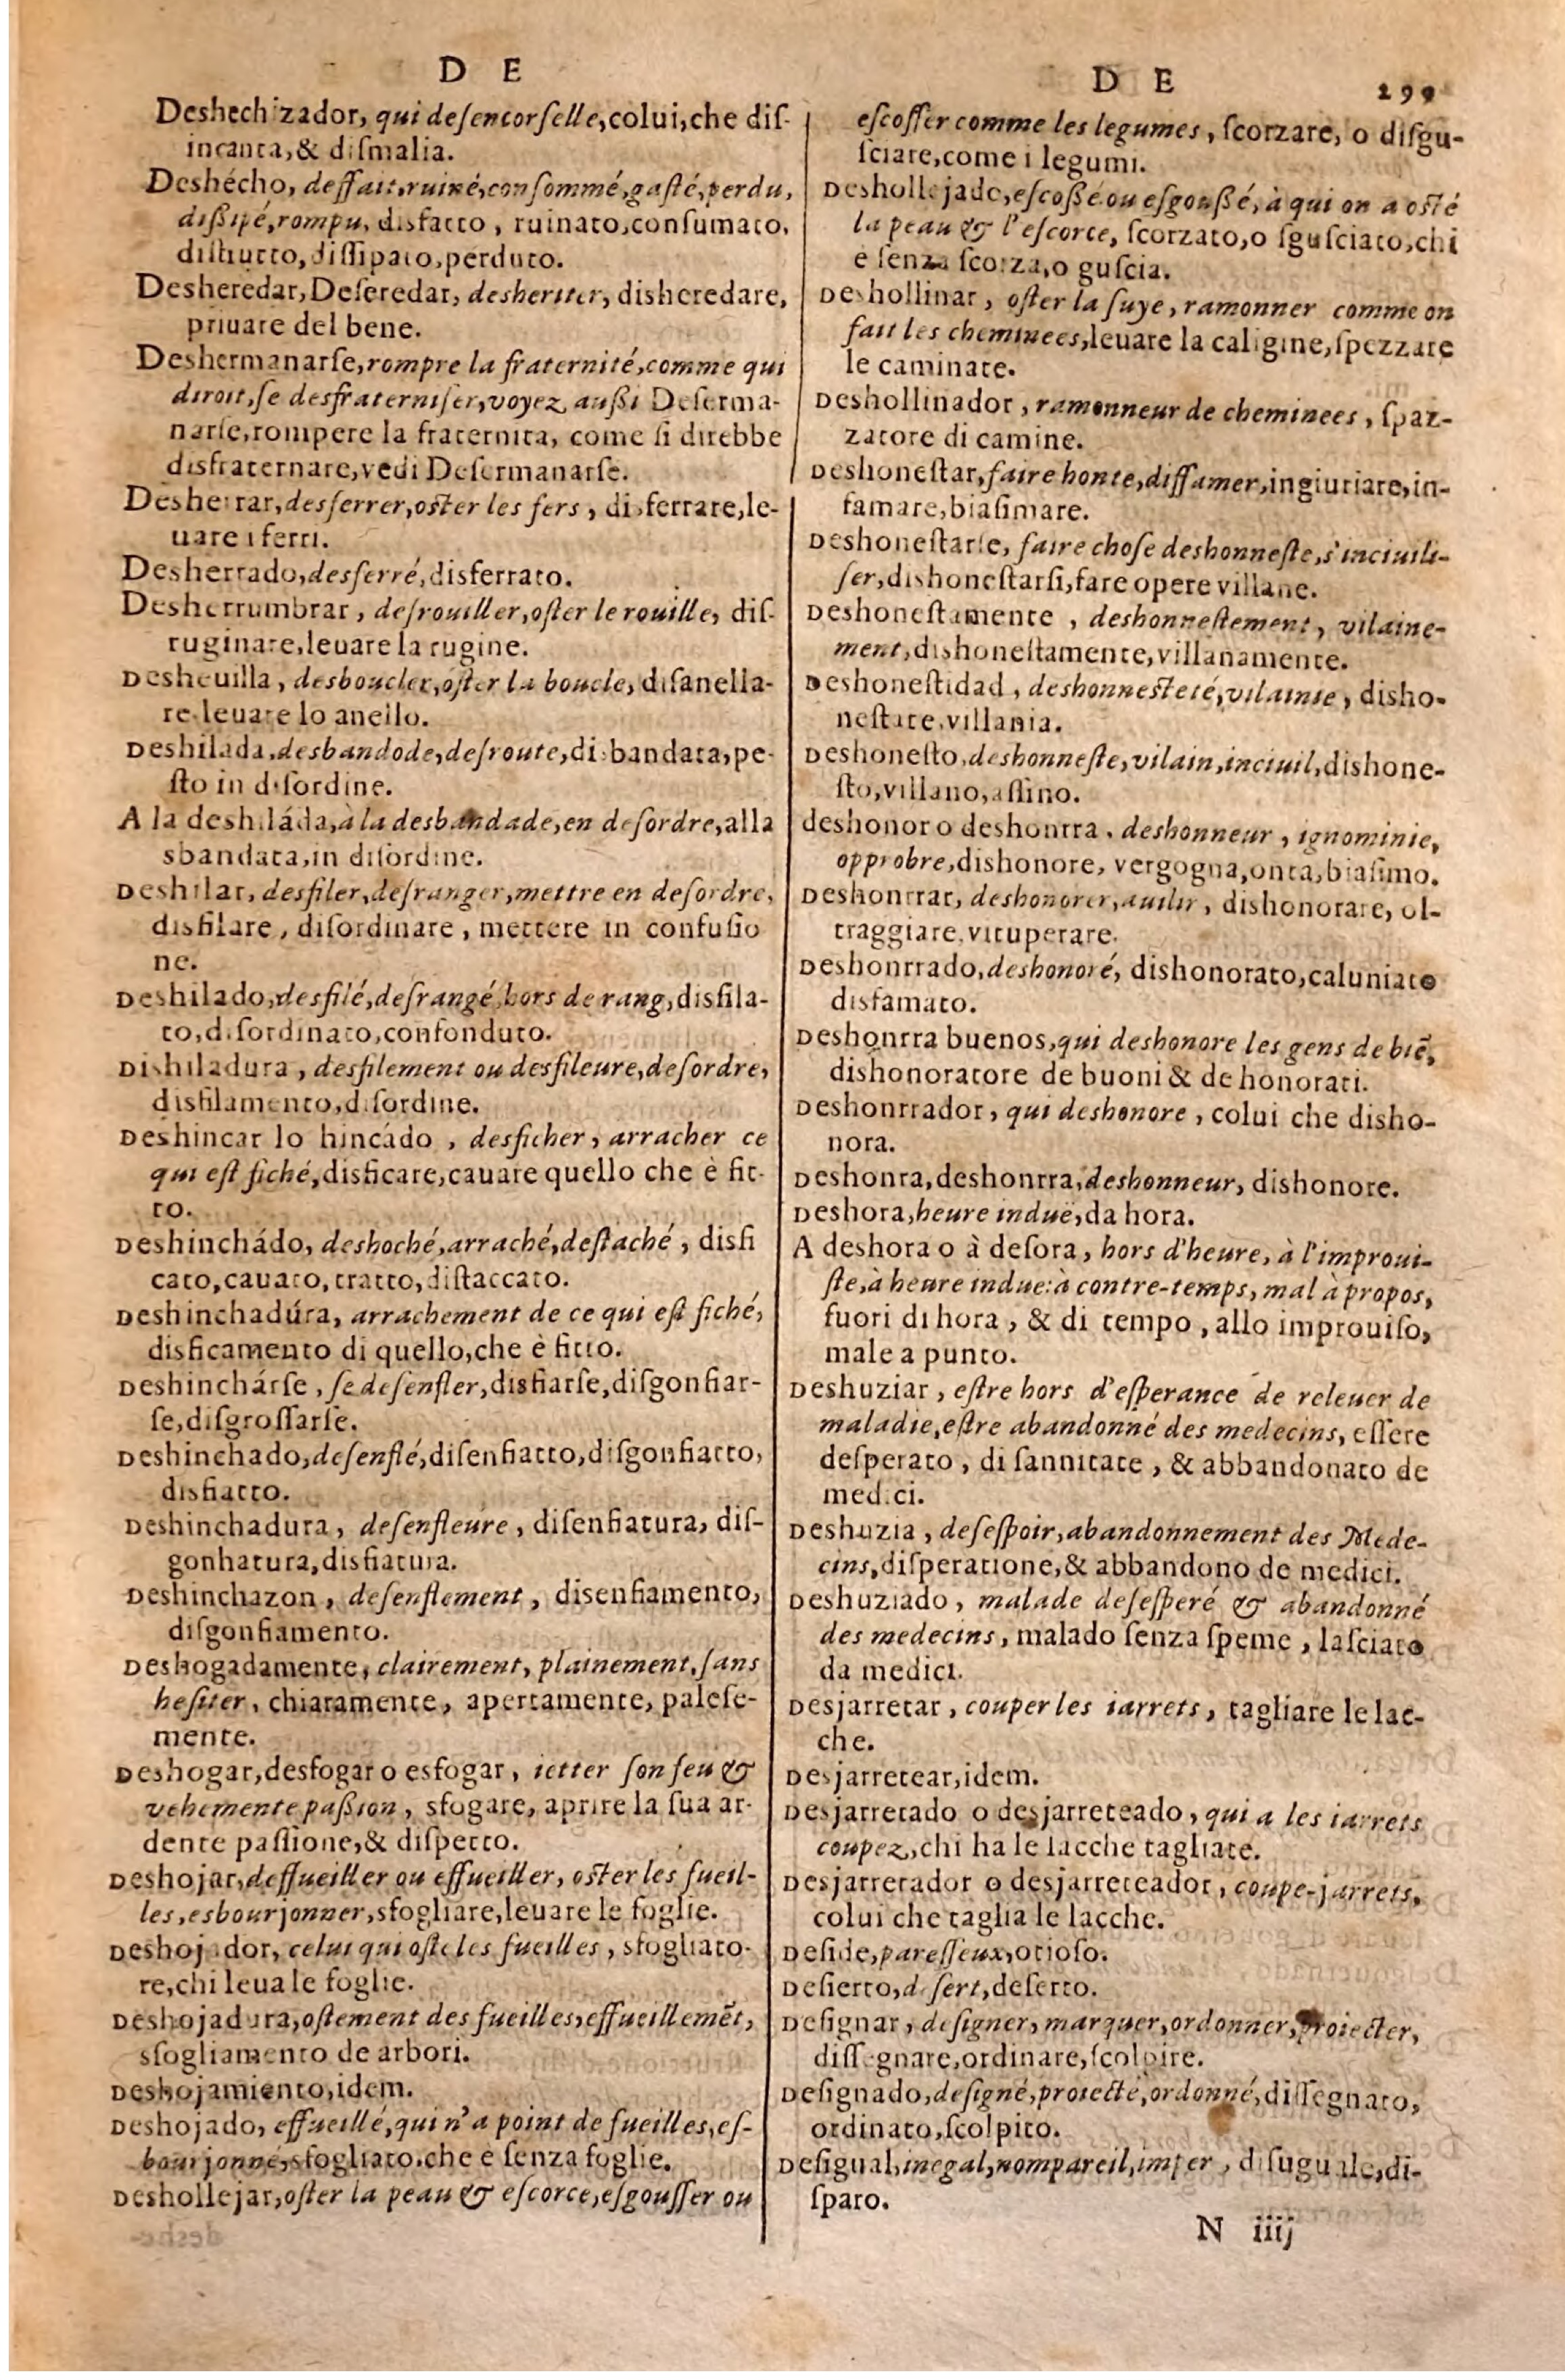 D E
Deshechizador, qui deſencorſelle, colui, che diſ-
incanta, & diſmalia.
Deshécho, deffait, ruiné, conſommé, gaſté, perdu,
dißipé, rompu, disfatto, ruinato, conſumato,
diſtrutto, diſſipato, perduto.
Desheredar, Deſeredar, desheriter, disheredare,
priuare del bene.
Deshermanarſe, rompre la fraternité, comme qui
diroit, ſe desfraterniſer, voyez außi Deſerma-
narſe, rompere la fraternita, come ſi direbbe
disfraternare, vedi Deſermanarſe.
Desherrar, desferrer, oſter les fers, disferrare, le-
uare i ferri.
Desherrado, desferré, disferrato.
Desherrumbrar, deſrouiller, oſter le rouille, diſ-
ruginare, leuare la rugine.
Desheuilla, desboucler, oſter la boucle, diſanella-
re leuare lo anello.
Deshilada, desbandode, deſroute, disbandata, pe-
ſto in diſordine.
A la deshiláda, à la desbandade, en deſordre, alla
sbandata, in diſordine.
Deshilar, desfiler, deſranger, mettre en deſordre,
disfilare, diſordinare, mettere in confuſio
ne.
Deshilado, desfilé, deſrangé, hors de rang, disfila-
to, diſordinato, confonduto.
Dishiladura, desfilement ou desfileure, deſordre,
disfilamento, diſordine.
Deshincar lo hincádo, desficher, arracher ce
qui eſt fiché, disficare, cauare quello che è fit-
to.
Deshinchádo, deshoché, arraché, deſtaché, disfi
cato, cauato, tratto, diſtaccato.
Deshinchadúra, arrachement de ce qui eſt fiché,
disficamento di quello, che è fitto.
Deshinchárſe, ſe deſenfler, disfiarſe, diſgonfiar-
ſe, diſgroſſarſe.
Deshinchado, deſenflé, diſenfiatto, diſgonfiatto,
disfiatto.
Deshinchadura, deſenfleure, diſenfiatura, diſ-
gonhatura, disfiatura.
Deshinchazon, deſenflement, disenfiamento,
diſgonfiamento.
Deshogadamente, clairement, plainement, ſans
heſiter, chiaramente, apertamente, paleſe-
mente.
Deshogar, desfogar o esfogar, ietter ſon feu &
vehemente paßion, sfogare, aprire la ſua ar-
dente paſſione, & diſpetto.
Deshojar, deffueiller ou effueiller, oſter les fueil-
les, esbourjonner, sfogliare, leuare le foglie.
Deshojador, celui qui oſte les fueilles, sfogliato-
re, chi leua le foglie.
Deshojadura, oſtement des fueilles, effueillemẽt,
sfogliamento de arbori.
Deshojamiento, idem.
Deshojado, effueillé, qui n'a point de fueilles, eſ-
bourjonné, sfogliato, che è ſenza foglie.
Deshollejar, oſter la peau & eſcorce, eſgouſſer ou
D E 299
eſcoſſer comme les legumes, ſcorzare, o diſgu-
ſciare, come i legumi.
Deshollejado, eſcoßé ou eſgoußé, à qui on a oſté
la peau & l'eſcorce, ſcorzato, o ſguſciato, chi
e ſenza ſcorza, o guſcia.
Deshollinar, oſter la ſuye, ramonner comme on
fait les cheminees, leuare la caligine, ſpezzare
le caminate.
Deshollinador, ramonneur de cheminees, ſpaz-
zatore di camine.
Deshoneſtar, faire honte, diffamer, ingiuriare, in-
famare, biaſimare.
Deshoneſtarſe, faire choſe deshonneſte, s'inciuili-
ſer, dishoneſtarſi, fare opere villane.
Deshoneſtamente, deshonneſtement, vilaine-
ment, dishoneſtamente, villanamente.
Deshoneſtidad, deshonneſteté, vilainie, disho-
neſtate, villania.
Deshoneſto, deshonneſte, vilain, inciuil, dishone-
ſto, villano, aſſino.
deshonor o deshonrra, deshonneur, ignominie,
opprobre, dishonore, vergogna, onta, biaſimo.
Deshonrrar, deshonorer, auilir, dishonorare, ol-
traggiare, vituperare.
Deshonrrado, deshonoré, dishonorato, caluniato
disfamato.
Deshonrra buenos, qui deshonore les gens de biẽ,
dishonoratore de buoni & de honorati.
Deshonrrador, qui deshonore, colui che disho-
nora.
Deshonra, deshonrra, deshonneur, dishonore.
Deshora, heure indue, da hora.
A deshora o à deſora, hors d'heure, à l'improui-
ſte, à heure indue: à contre-temps, mal à propos,
fuori di hora, & di tempo, allo improuiſo,
male a punto.
Deshuziar, eſtre hors d'eſperance de releuer de
maladie, eſtre abandonné des medecins, eſſere
deſperato, di ſannitate, & abbandonato de
medici.
Deshuzia, deſeſpoir, abandonnement des Mede-
cins, diſperatione, & abbandono de medici.
Deshuziado, malade deſeſperé & abandonné
des medecins, malado ſenza ſpeme, laſciato
da medici.
Desjarretar, couper les iarrets, tagliare le lac-
che.
Desjarretear, idem.
Desjarretado o desjarreteado, qui a les iarrets
coupez, chi ha le lacche tagliate.
Desjarretador o desjarreteador, coupe-jarrets,
colui che taglia le lacche.
Deſide, pareſſeux, otioſo.
Deſierto, deſert, deſerto.
Deſignar, deſigner, marquer, ordonner, proiecter,
diſſegnare, ordinare, ſcolpire.
Deſignado, deſigné, proiecté, ordonné, diſſegnato,
ordinato, ſcolpito.
Deſigual, inegal, nompareil, imper, diſuguale, di-
ſparo.
N iiij